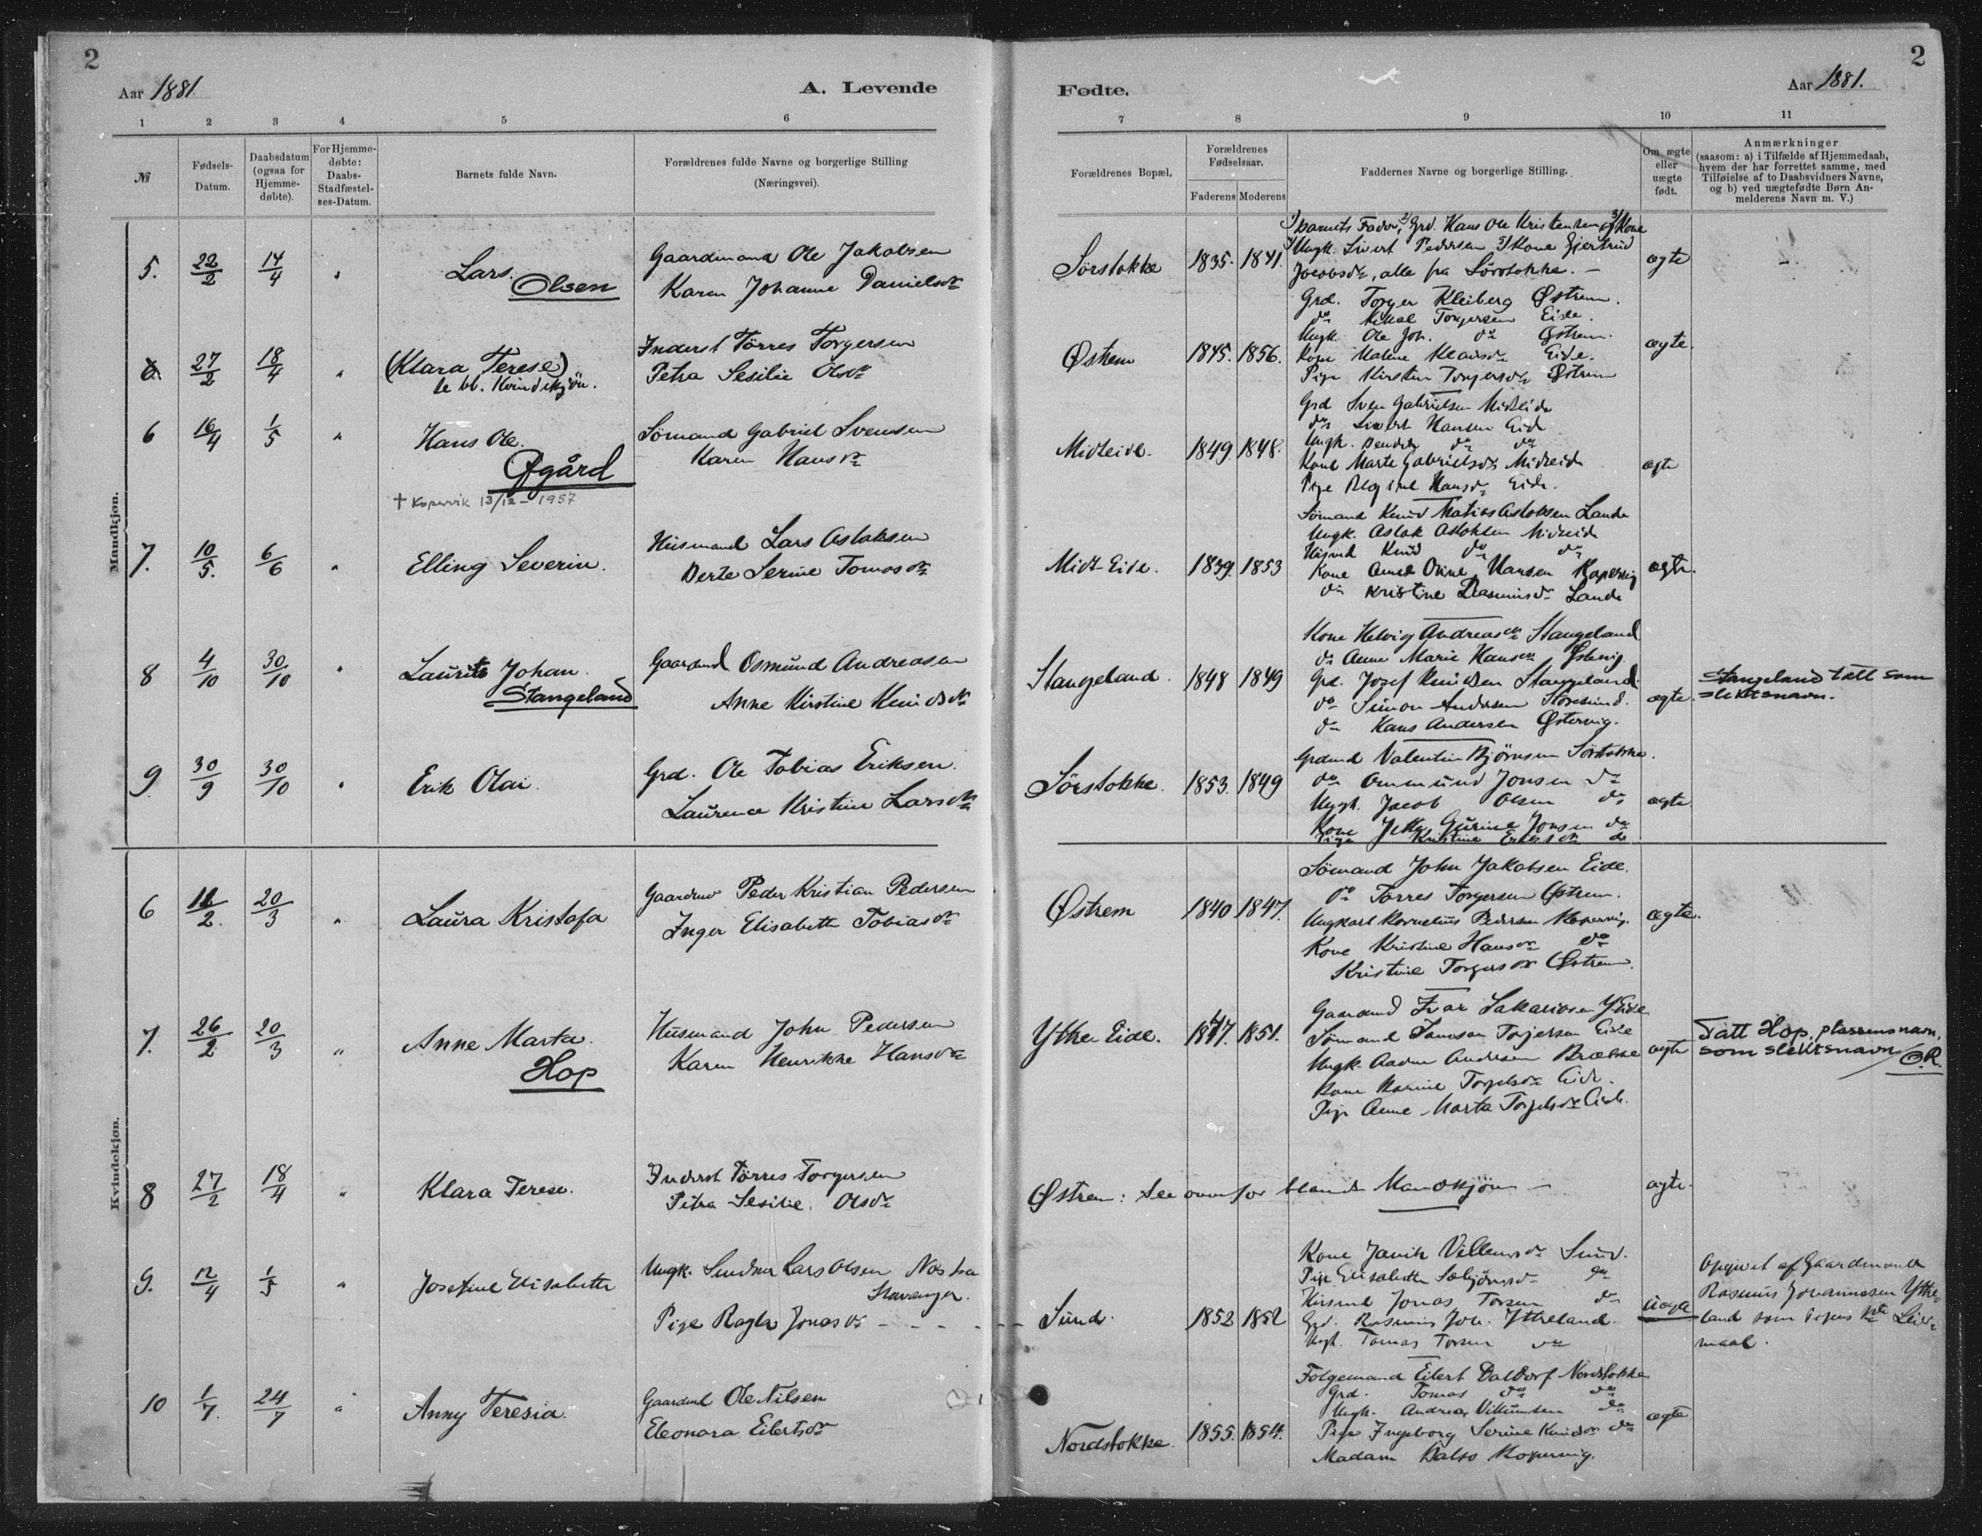 2
Aar 1881
A. Levende
Fødte.
Aar 1881.
2
1 2 3 4 5 6 7 8 9 10 11
№
Fødsels-
Datum.
Daabsdatum
(ogsaa for
Hjemme-
døbte).
For Hjemme-
døbte:
Daabs-
Stadfæstel-
ses-Datum.
Barnets fulde Navn.
Forældrenes fulde Navne og borgerlige Stilling
(Næringsvei).
Forældrenes Bopæl.
Forældrenes
Fødselsaar.
Faderens Moderens
Faddernes Navne og borgerlige Stilling.
Om ægte
eller
uægte
født.
Anmærkninger
(saasom: a) i Tilfælde af Hjemmedaab,
hvem der har forrettet samme, med
Tilføielse af to Daabsvidners Navne,
og b) ved uægtefødte Børn An-
melderens Navn m. V.)
Mandkjøn.
5. 22/2 14/4 "
Lars
Olsen
Gaardmand Ole Jakobsen
Karen Johanne Danielsdr
Sørstokke 1835. 1841.
1/ Barnets Fader, 2/ Grd. Hans Ole Kristensen og 3/ Kone
Ungk. Sivert Pedersen Kone Gjertrud
Jacobsdr, alle fra Sørstokke. —
ægte
6. 27/2 18/4 "
(Klara Terese)
se bl. Kvindekjøn.
Inderst Tørres Torgersen
Petra Sesilie Olsdr
Østrem 1845. 1856.
Grd. Torger Kleiberg Østrem.
do Mikal Torgersen Eide.
Ungk. Ole Joh. do Østrem.
Kone Malene Klausdr Eide.
Pige Kirsten Torgersdr Østrem
ægte.
6 16/4 1/5 "
Hans Ole.
Øgård
† Kopervik 13/12 - 1957
Sømand Gabriel Svensen
Karen Hansdr
Midteide. 1849 1848.
Grd Sven Gabrielsen Midteide
do Sivert Hansen Eide
Ungk. do do
Kone Marte Gabrielsdr Midteide
Pige Hansdr Eide.
ægte
7. 10/5. 6/6 "
Elling Severin.
Husmand Lars Aslaksen
Berte Serine Tomasdr
Midt-Eide. 1839. 1853
Sømand Knud Matias Aslaksen Lande
Ungk. Aslak Aslaksen Midteide
Knud do do
Kone Anne Oline Hansen Kopervig
do Kristine Rasmusdr Lande
ægte.
8 4/10 30/10 "
Laurits Johan.
Stangeland
Gaardmd Osmund Andreasen
Anne Kirstine Knudsdr
Stangeland. 1848 1849
Kone Helvig Andreasdr Stangeland
do Anne Marie Hansen Østevig
Grd. Josef Knudsen Stangeland.
do Simon Andersen Storesund.
do Hans Andersen Østervig.
ægte.
Stangeland tatt som
slektsnavn.
9. 30/9 30/10 "
Erik Olai.
Grd. Ole Tobias Eriksen.
Laurence Kristine Larsdr
Sørstokke. 1853. 1849
Grdmd Valentin Bjørnsen Sørstokke.
do Ommund Jonsen do
Ungk. Jacob Olsen do
Kone Gurine Jonsen do
Pige Kristine Eriksdr do
ægte.
Kvindekjøn.
6 12/2. 20/3 "
Laura Kristofa
Gaardmd Peder Kristian Pedersen
Inger Elisabeth Tobiasdr
Østrem 1840 1847.
Sømand John Jakobsen Eide.
do Tørres Torgersen Østrem.
Ungkarl Kornelius Pedersen Kopervig.
Kone Kristine Hansdr do
Kristine Torgersdr Østrem.
ægte.
7. 26/2 20/3 "
Anne Marta.
Hop
Husmand John Pedersen
Karen Henrikke Hansdr
Ytre Eide. 1847. 1851.
Gaardmd Ivar Sakariasen Y Eide
Sømand Torgersen Eide
Ungk. Andersen Brække
Kone Torgelsdr Eide.
Pige Anne Marta Torgelsdr Eide.
ægte
Tatt Hop, plassens navn,
som slektsnavn / O.R.
8 27/2 18/4 "
Klara Terese.
Inderst Tørres Torgersen
Petra Sesilie. Olsdr
Østrem: See ovenfor blandt Mandkjøn —
ægte.
9. 12/4 1/5 "
Josefine Elisabeth
Ungk. Lars Olsen Næs fra
Stavanger.
Pige Ragla Jonasdr - - - - -
Sund. 1852 1852
Kone Janik Villumsdr Sund.
Pige Elisabeth do
Jonas Torsen do
Grd. Rasmus Joh. Ytreland.
Ungk. Tomas Torsen do
uægte
Opgivet af Gaardmand
Rasmus Johannessen Ytre-
land som Pigens 1ste Leier-
maal.
10 1/7. 24/7 "
Anny Teresia.
Gaardmd Ole Nilsen
Eleonora Eilertsdr
Nordstokke. 1855. 1854.
Folgemand Eilert Daldorf Nordstokke
Grd. Tomas do do
Ungk. Andreas Villumsen do
Pige Ingeborg Serine Knudsdr do
Madam Kopervig.
ægte.